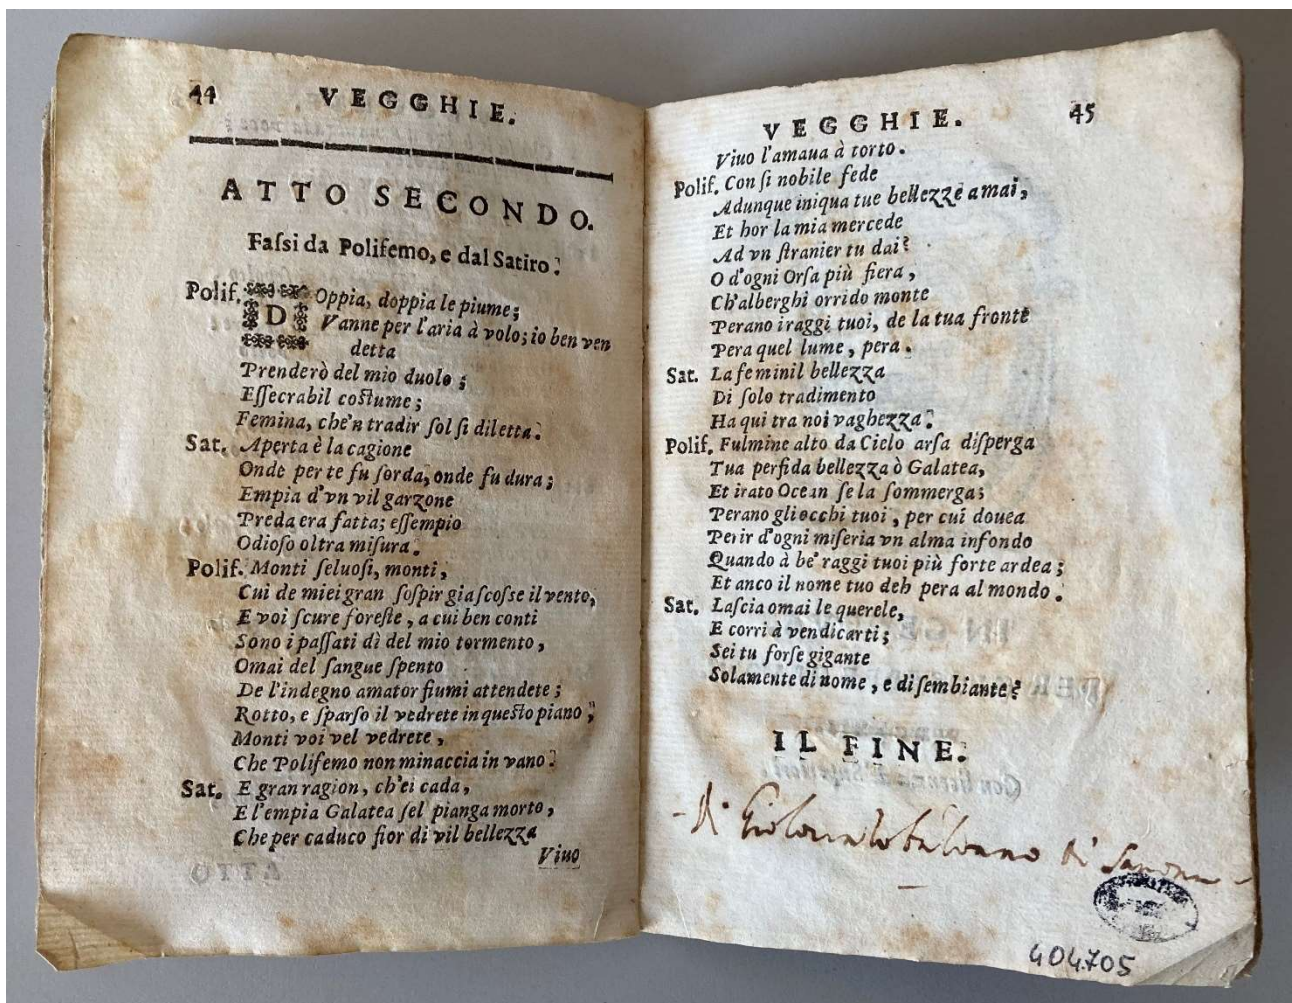 44 VEGGHIE.
ATTO SECONDO.
Faſsi da Polifemo, e dal Satiro.
Polif. DOppia, doppia le piume;
Vanne per l'aria à volo; io ben ven
detta
Prenderò del mio duolo;
Eſſecrabil coſtume;
Femina, che'n tradir ſol ſi diletta.
Sat. Aperta è la cagione
Onde per te fu ſorda, onde fu dura;
Empia d'vn vil garzone
Preda era fatta; eſſempio
Odioſo oltra miſura.
Polif. Monti ſeluoſi, monti,
Cui de miei gran ſoſpir gia ſcoſſe il vento,
E voi ſcure foreſte, a cui ben conti
Sono i paſſati dì del mio tormento,
Omai del ſangue ſpento
De l'indegno amator fiumi attendete;
Rotto, e ſparſo il vedrete in queſto piano;
Monti voi vel vedrete,
Che Polifemo non minaccia in vano.
Sat. E gran ragion, ch'ei cada,
E l'empia Galatea ſel pianga morto,
Che per caduco fior di vil bellezza
Viuo
VEGGHIE. 45
Viuo l'amaua à torto.
Polif. Con ſi nobile fede
Adunque iniqua tue bellezze amai,
Et hor la mia mercede
Ad vn ſtranier tu dai?
O d'ogni Orſa più fiera,
Ch'alberghi orrido monte
Perano i raggi tuoi, de la tua fronte
Pera quel lume, pera.
Sat. La feminil bellezza
Di ſolo tradimento
Ha qui tra noi vaghezza.
Polif. Fulmine alto da Cielo arſa diſperga
Tua perfida bellezza ò Galatea,
Et irato Ocean ſe la ſommerga;
Perano gli occhi tuoi, per cui douea
Perir d'ogni miſeria vn alma infondo
Quando à be' raggi tuoi più forte ardea;
Et anco il nome tuo deh pera al mondo.
Sat. Laſcia omai le querele,
E corri à vendicarti;
Sei tu forſe gigante
Solamente di nome, e di ſembiante?
IL FINE.
di Sauona
404705